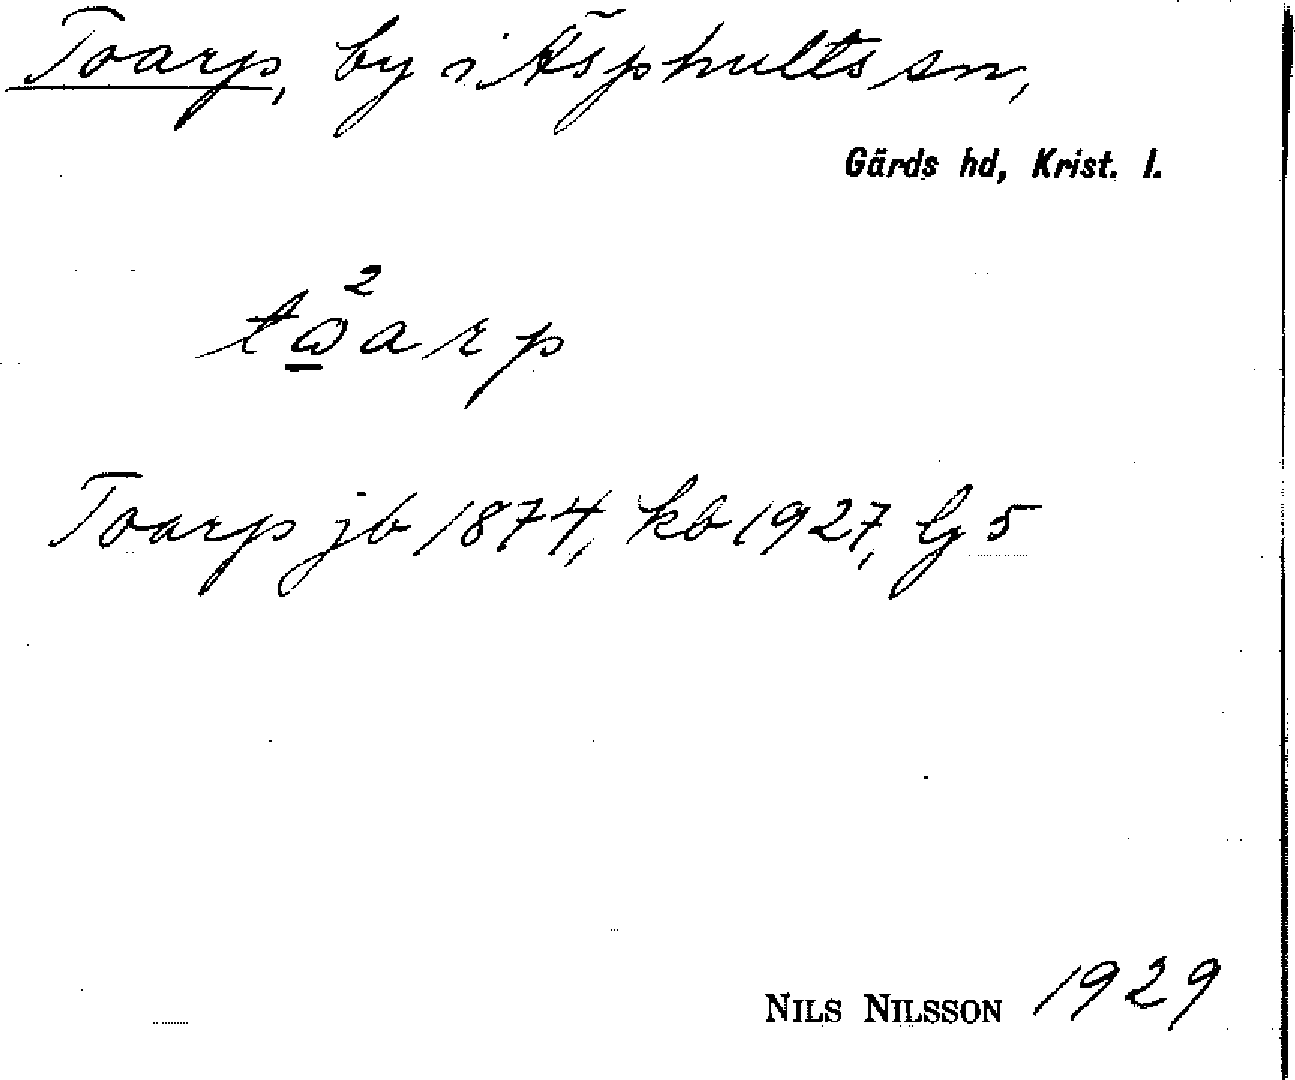 Toarp, by i Äsphults sn,
Gärds hd, Krist. l.
tω̲²arp
Toarp jb 1874, kb 1927, Gj 5
NILS NILSSON 1929